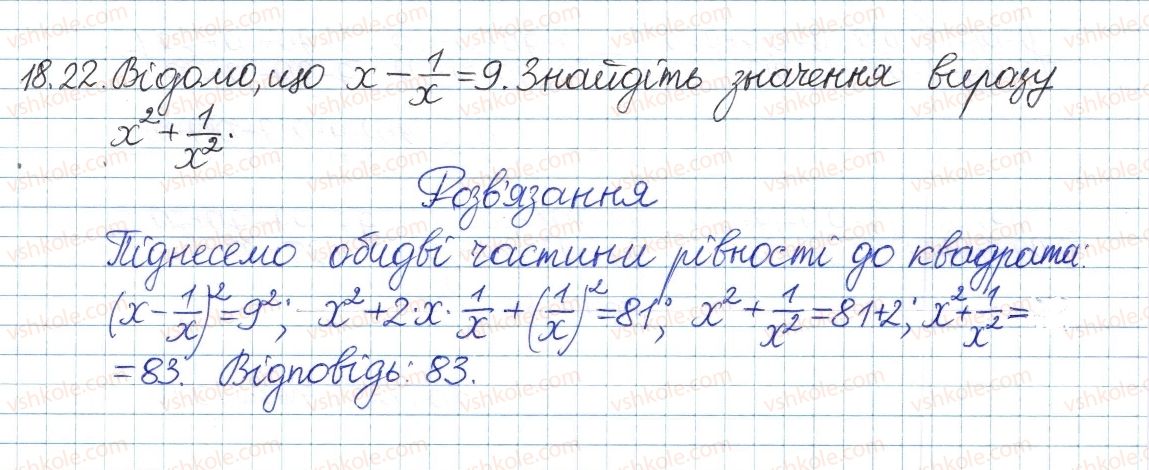 18.22. Відомо, що x - 1/x = 9. Знайдіть значення виразу
x² + 1/x².
Розв'язання
Піднесемо обидві частини рівності до квадрата:
(x - 1/x)² = 9²; x² + 2·x·1/x + (1/x)² = 81; x² + 1/x² = 81+2; x² + 1/x² =
= 83. Відповідь: 83.